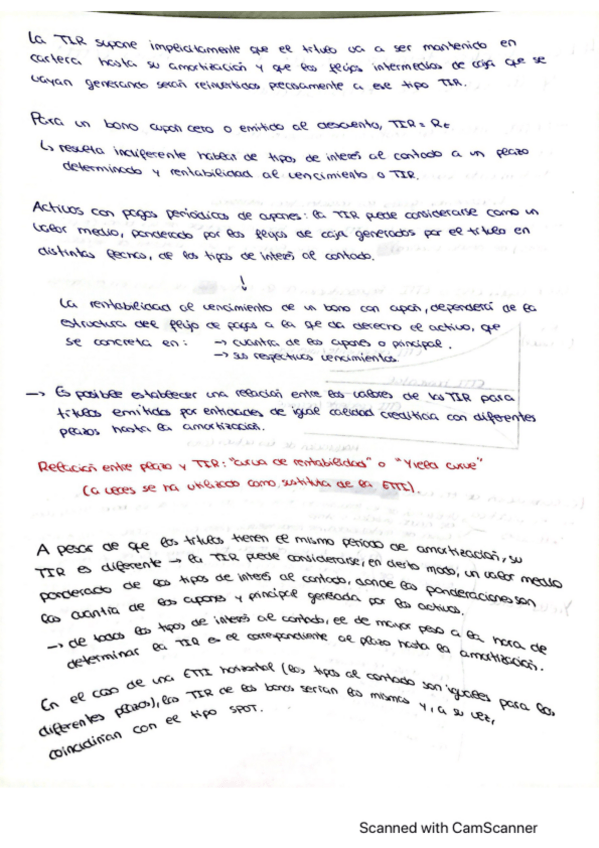 La TIR supone implícitamente que el título va a ser mantenido en
cartera hasta su amortización y que los flujos intermedios de caja que se
vayan generando serán reinvertidos precisamente a ese tipo TIR.
Para un bono cupón cero o emitido al descuento, TIR = Rt
↳ resulta indiferente hablar de tipos de interés al contado a un plazo
determinado y rentabilidad al vencimiento o TIR.
Activos con pagos periódicos de cupones: la TIR puede considerarse como un
valor medio, ponderado por los flujos de caja generados por el título en
distintas fechas, de los tipos de interés al contado.
↓
La rentabilidad al vencimiento de un bono con cupón, dependerá de la
estructura del flujo de pagos a la que da derecho el activo, que
se concreta en: → cuantía de los cupones o principal.
→ sus respectivos vencimientos.
→ Es posible establecer una relación entre los valores de las TIR para
títulos emitidos por entidades de igual calidad crediticia con diferentes
plazos hasta la amortización.
Relación entre plazo y TIR: "curva de rentabilidad" o "Yield curve"
(a veces se ha utilizado como sustituta de la ETTI).
A pesar de que los títulos tienen el mismo período de amortización, su
TIR es diferente → la TIR puede considerarse, en cierto modo, un valor medio
ponderado de los tipos de interés al contado, donde las ponderaciones son
las cuantía de los cupones y principal generada por los activos.
→ de todos los tipos de interés al contado, el de mayor peso a la hora de
determinar la TIR es el correspondiente al plazo hasta la amortización.
En el caso de una ETTI horizontal (los tipos al contado son iguales para los
diferentes plazos), las TIR de los bonos serían las mismas y, a su vez,
coincidirían con el tipo SPOT.
Scanned with CamScanner